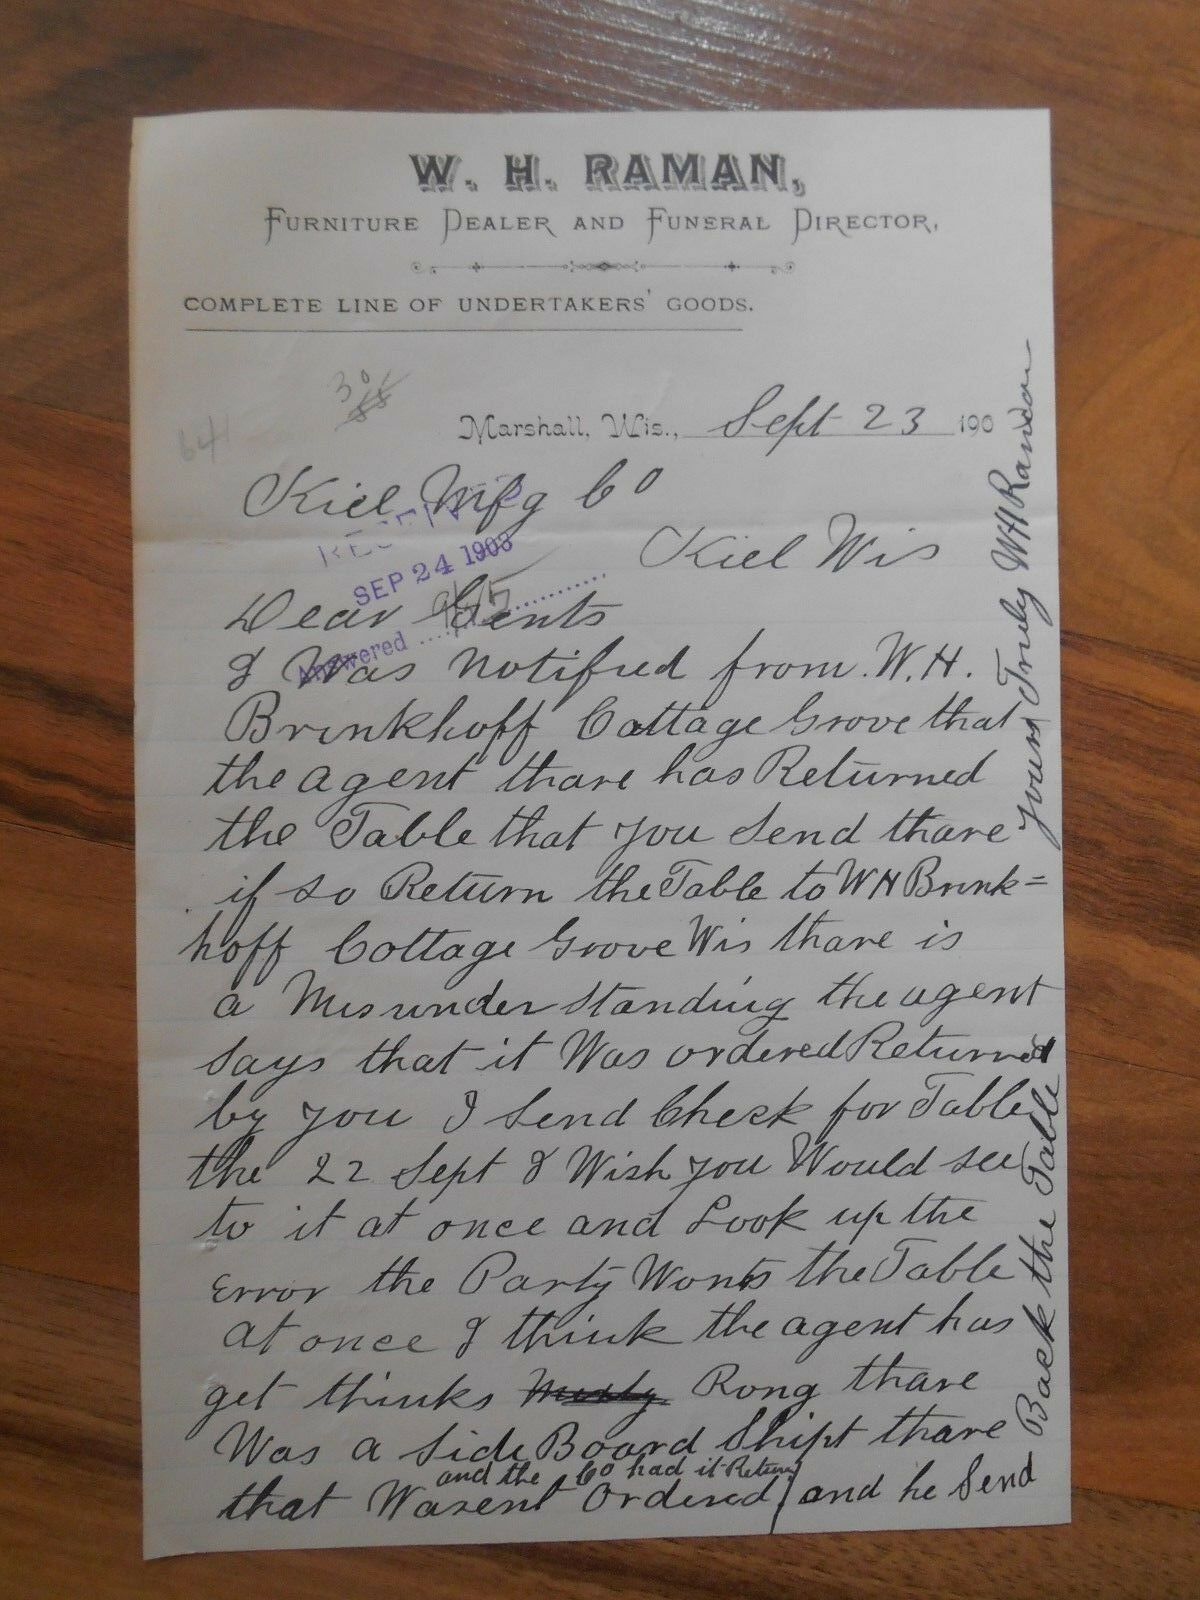 W. H. RAMAN,
FURNITURE DEALER AND FUNERAL DIRECTOR,
COMPLETE LINE OF UNDERTAKERS' GOODS.
641
Marshall, Wis., Sept 23 190
Kiel Mfg Co
RECEIVED
SEP 24 1903
Answered
Kiel Wis
Dear Gents
I Was notified from W. H.
Brinkhoff Cottage Grove that
the agent thare has Returned
the Table that you Send thare
if so Return the Table to W H Brink=
hoff Cottage Grove Wis thare is
a Misunderstanding the agent
Says that it Was ordered Returned
by you I Send Check for Table
the 22 Sept I Wish you Would see
to it at once and Look up the
Error the Party Wonts the Table
at once I think the agent has
get thinks Rong thare
Was a Side Board Shipt thare
that Warent Ordered and the Co had it Return and he Send
Back the Table
Yours Truly W H Raman